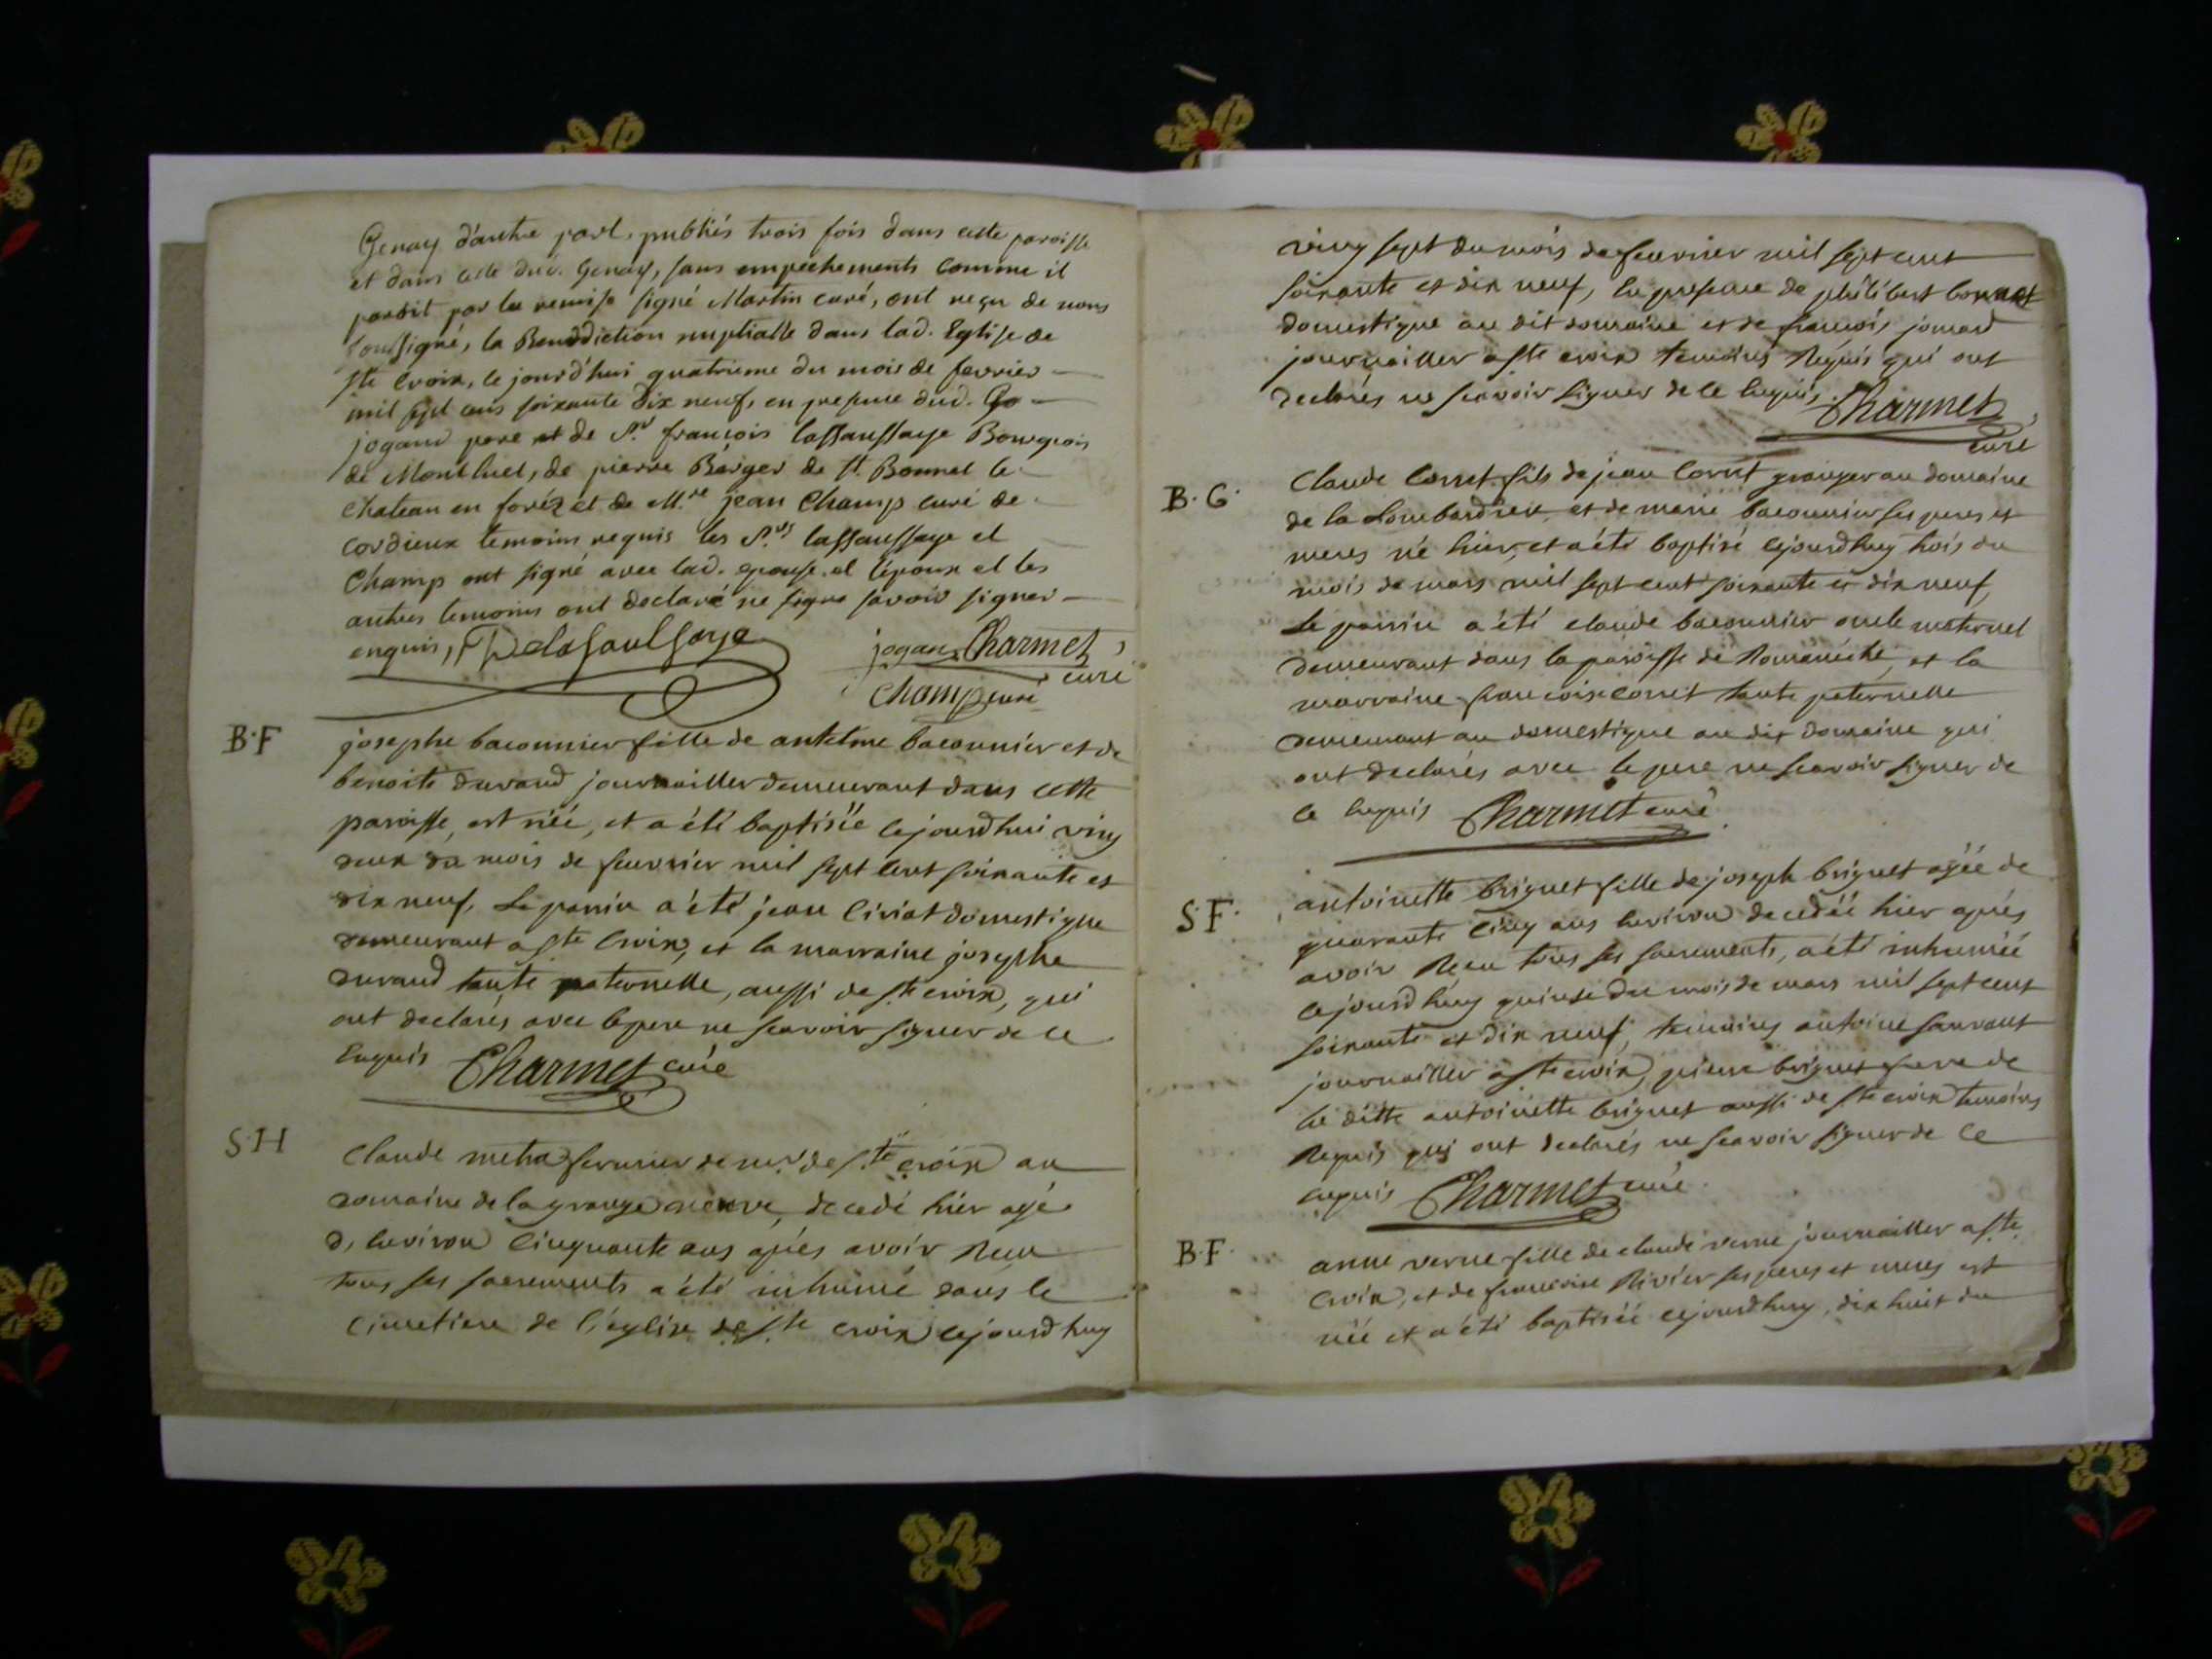 Genay d'autre part, publiés trois fois dans cette paroisse
et dans celle dud. Genay, sans empechements comme il
paroit par la remise signé Martin curé, ont reçu de nous
soussigné, la Benediction nuptialle dans lad. Eglise de
ste Croix, le jourd'hui quatrieme du mois de fevrier
mil sept cens soixante dix neuf, en presence dud.
jogand pere et de Sr. françois lassaussaye Bourgeois
de Montluel, de pierre Berger de st. Bonnet le
chateau en foréz et de M.re jean Champ curé de
Cordieux temoins requis les S.rs lassaussaye et
Champ ont signé avec lad. epouse et l'époux et les
autres temoins ont declaré ne signe savoir signer
enquis, Delasaulsaye jogan Charmet
curé
Champ curé
B.F
josephe baconnier fille de antelme baconnier et de
benoite durand journaillier demeurant dans cette
paroisse, est néé, et a été baptiséé cejourdhui ving
deux du mois de feuvrier mil sept cent soixante et
dix neuf, Le parrin a été jean Civiat domestique
demeurant a ste Croix, et la marraine josephe
durand tante paternelle, aussi de ste croix, qui
ont declarés avec le pere ne scavoir signer de ce
Enquis Charmet curé
S.H
Claude serrurier de mr. de ste croix au
domaine de la grange neuve, decedé hier agé
d, Environ Cinquante ans aprés avoir Reçu
tous ses sacrements a été inhumé dans le
Cimetiere de l'églixe de ste croix cejourd huy
ving sept du mois de feuvrier mil sept cent
soixante et dix neuf, En presence de philibert bonnet
domestique au dit domaine et de francois jomard
journaillier a ste croix temoins Requis qui ont
declarés ne scavoir signer de ce Enquis Charmet
curé
B.G.
Claude Cornet fils de jean Cornet granger au domaine
de la Lombardiere et de marie baconnier ses peres et
meres né hier, et a été baptisé cejourdhuy trois du
mois de mars mil sept cent soixante et dix neuf,
Le parrin a été claude baconnier oncle maternel
demeurant dans la paroisse de Romanéche, et la
marraine francoise cornet tante paternelle
demeurant au domestique au dit domaine qui
ont declarés avec le pere ne scavoir signer de
ce Enquis Charmet curé
S.F.
antoinette briguet fille de joseph briguet agéé de
quarante Cinq ans Environ decedéé hier aprés
avoir Reçu tous ses sacrements, a été inhuméé
cejourd huy quinze du mois de mars mil sept cent
soixante et dix neuf, temoins antoine sarvant
journaillier a ste croix, pierre briguet frere de
la ditte antoinette briguet aussi de ste croix temoins
Requis qui ont declarés ne scavoir signer de Ce
enquis Charmet curé.
B.F.
anne verne fille de claude verne journaillier a ste
Croix, et de francoise Rivier ses peres et meres est
néé et a été baptiséé cejourdhuy, dix huit du